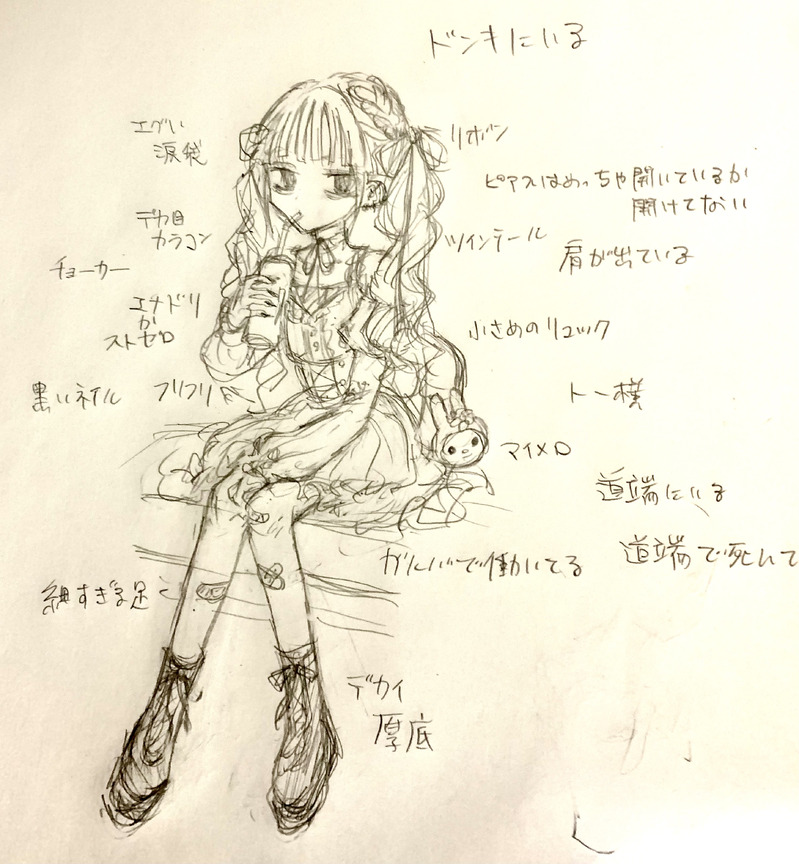 ドンキにいる
エグい
涙袋
リボン
ピアスはめっちゃ開いているか
開けてない
デカ目
カラコン
ツインテール
肩が出ている
チョーカー
エナドリ
か
ストゼロ
小さめのリュック
黒いネイル
フリフリ
トー横
マイメロ
道端にいる
ガルバで働いてる
道端で死んで
細すぎる足
デカイ
厚底